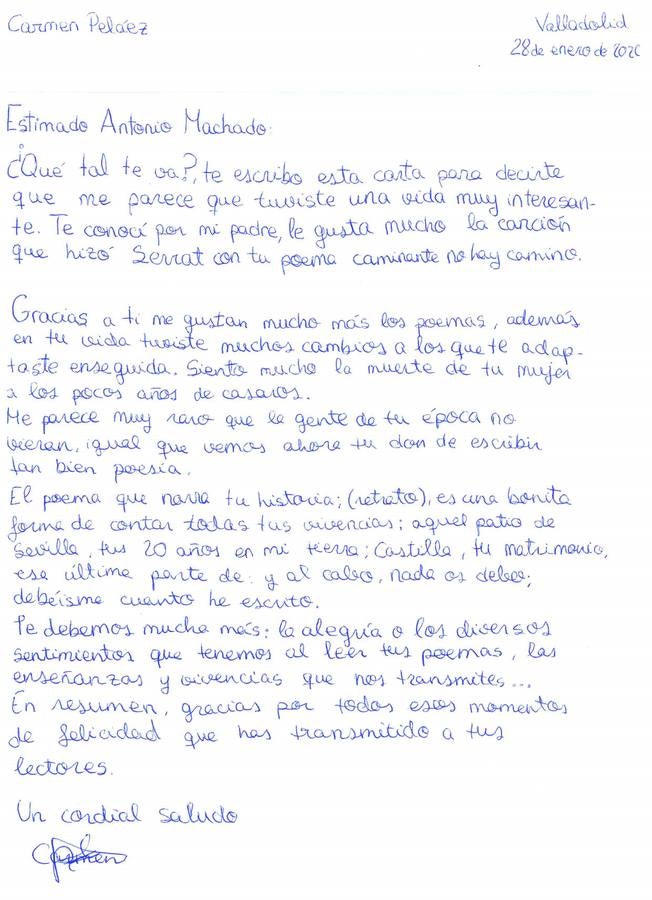 Carmen Peláez
Valladolid
28 de enero de 2020
Estimado Antonio Machado:
¿Qué tal te va?, te escribo esta carta para decirte
que me parece que tuviste una vida muy interesan-
te. Te conocí por mi padre, le gusta mucho la canción
que hizó Serrat con tu poema caminante no hay camino.
Gracias a ti me gustan mucho más los poemas, además
en tu vida tuviste muchos cambios a los que te adap-
taste enseguida. Siento mucho la muerte de tu mujer
a los pocos años de casaros.
Me parece muy raro que la gente de tu época no
vieran, igual que vemos ahora tu don de escribir
tan bien poesía.
El poema que narra tu historia; (retrato), es una bonita
forma de contar todas tus vivencias; aquel patio de
Sevilla, tus 20 años en mi tierra; Castilla, tu matrimonio,
esa última parte de: y al cabo, nada os debo;
debéisme cuanto he escrito.
Te debemos mucho más: la alegría o los diversos
sentimientos que tenemos al leer tus poemas, las
enseñanzas y vivencias que nos transmites...
En resumen, gracias por todos esos momentos
de felicidad que has transmitido a tus
lectores.
Un cordial saludo
Carmen